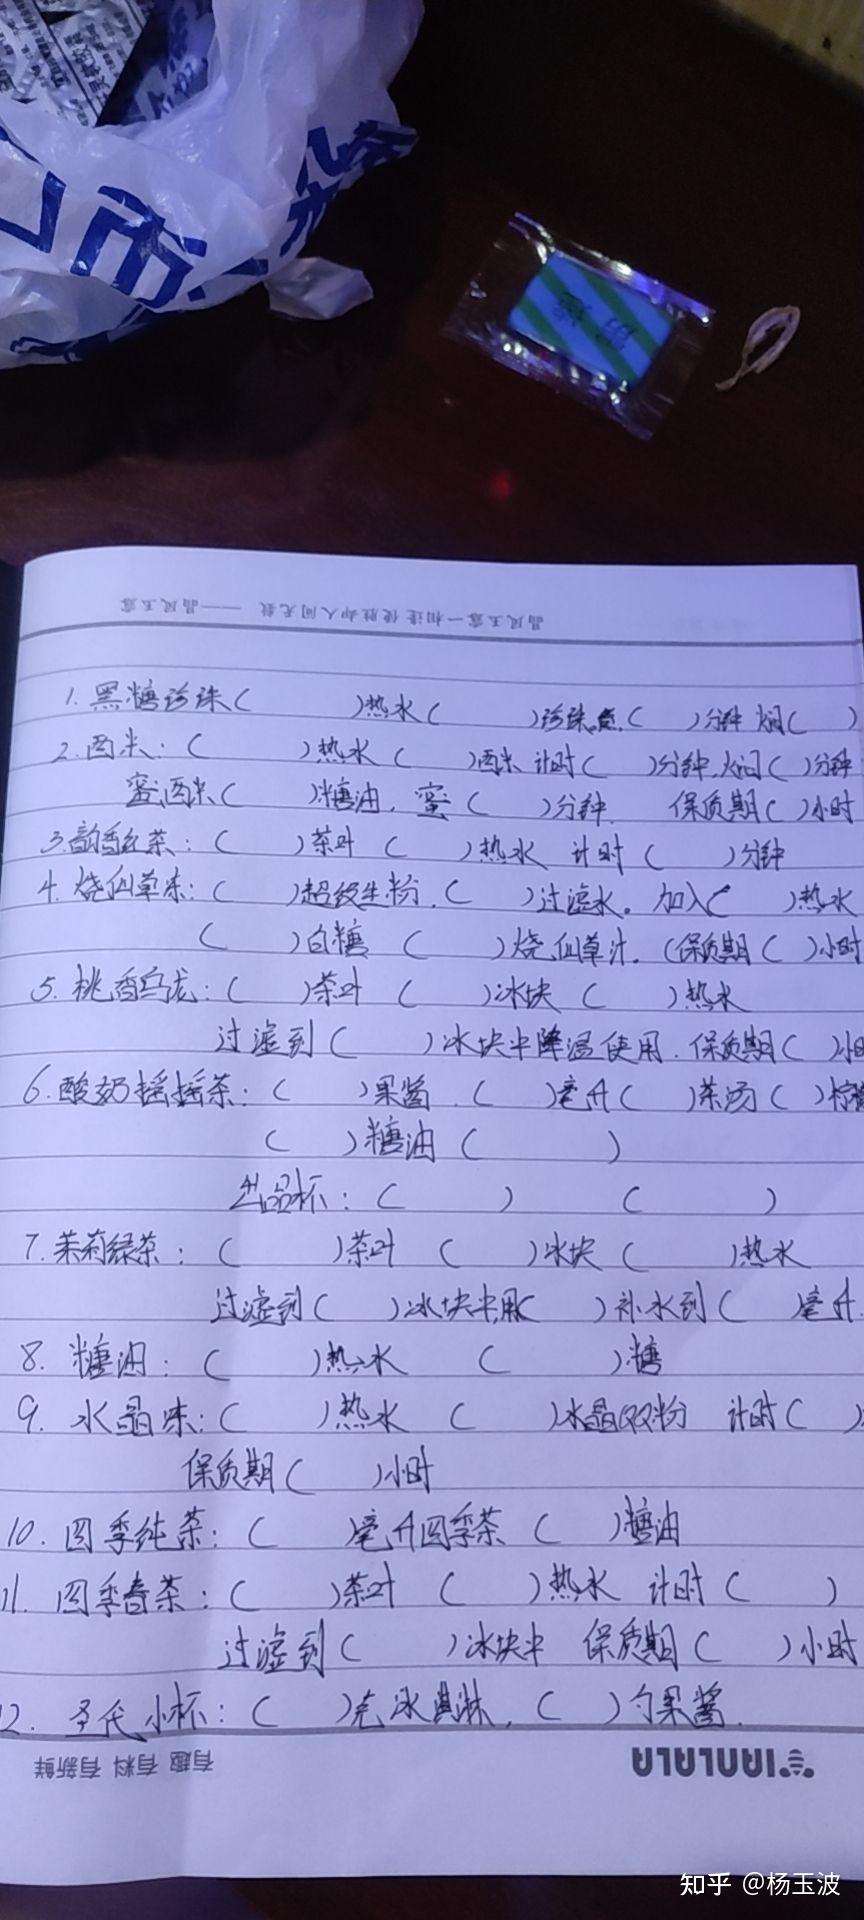 1. 黑糖珍珠(　　)热水(　　)珍珠煮(　)分钟 焖(　)
2. 西米：(　　)热水(　　)西米 计时(　)分钟，焖(　)分钟
蜜西米(　　)糖油，蜜(　　)分钟. 保质期(　)小时
3.韵香红茶：(　　)茶叶(　　)热水 计时(　　)分钟
4. 烧仙草冻：(　　)超级生粉，(　　)过滤水。加入(　　)热水
(　　)白糖(　　)烧仙草汁。(保质期(　)小时
5. 桃香乌龙：(　　)茶叶(　　)冰块(　　)热水
过滤到(　　)冰块中降温使用. 保质期(　)小时
6.酸奶摇摇茶：(　　)果酱.(　　)毫升(　　)茶汤(　)柠檬
(　　)糖油(　　)
出品杯：(　　)(　　)
7.茉莉绿茶：(　　)茶叶(　　)冰块(　　)热水
过滤到(　　)冰块中,用(　　)补水到(　　)毫升.
8. 糖油：(　　)热水(　　)糖
9. 水晶冻：(　　)热水(　　)水晶QQ粉 计时(　)
保质期(　　)小时
10. 四季纯茶：(　　)毫升四季茶(　　)糖油
11. 四季春茶：(　　)茶叶(　　)热水 计时(　　)
过滤到(　　)冰块中 保质期(　　)小时
12. 圣代小杯：(　　)克冰淇淋，(　　)勺果酱.
有趣 有料 有新鲜
知乎 @杨玉波